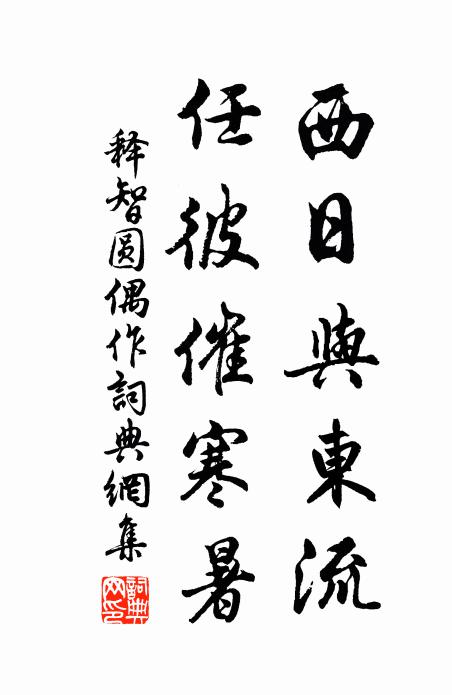 西日與東流
任彼催寒暑
释智圆偶作詞典網集
詞典網印